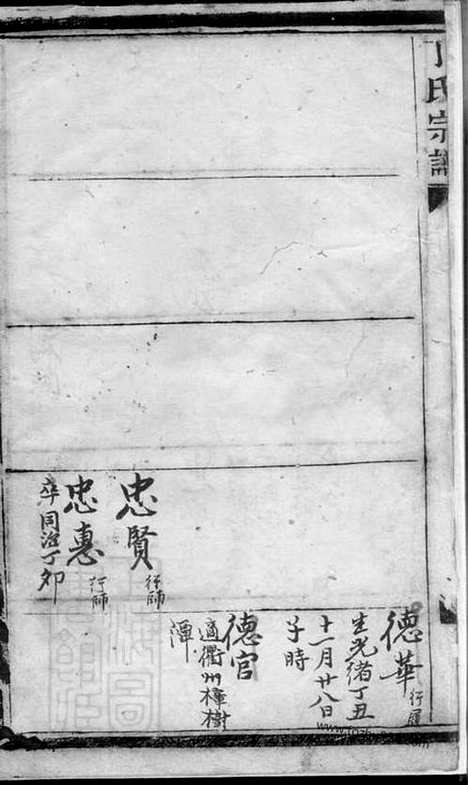 丁氏宗譜
忠賢
行師
忠惠
行師
卒同治丁夘
德華
行
生光緒丁丑
十一月廿八日
子時
德官
適衢州樟樹
潭